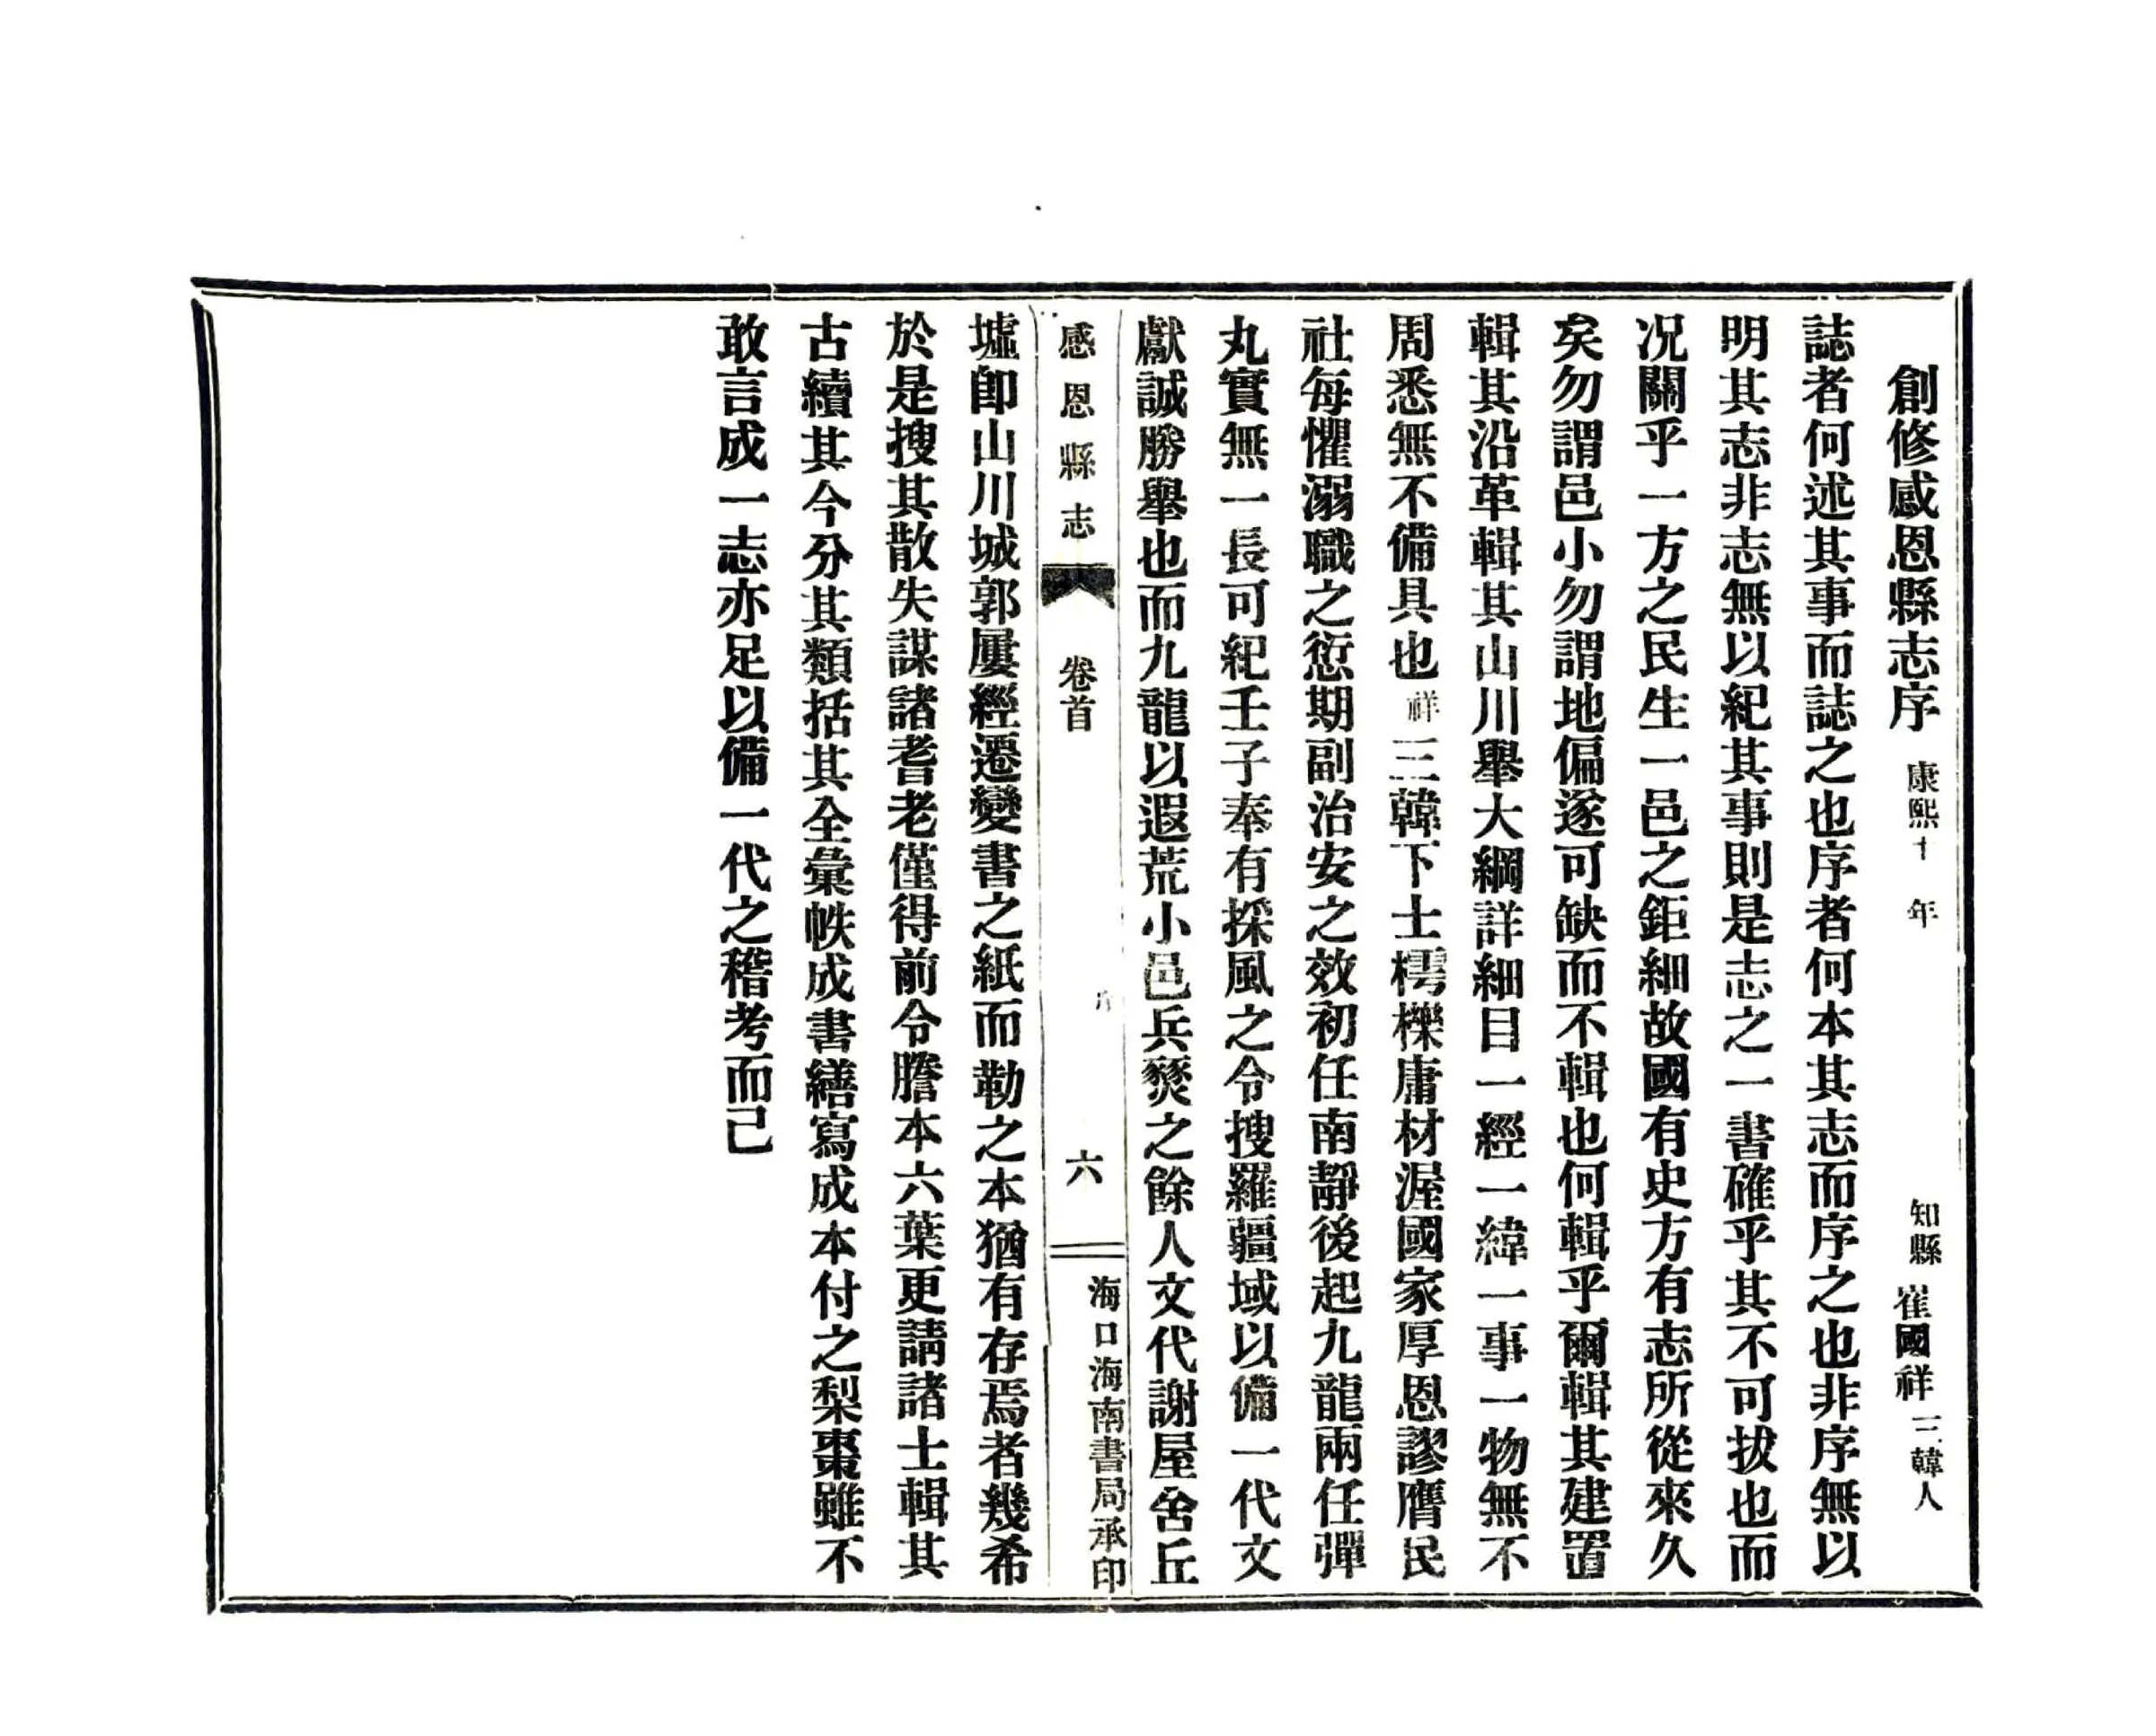 創修感恩縣志序 康熙十 年 知縣 崔國祥 三韓人
誌者何述其事而誌之也序者何本其志而序之也非序無以
明其志非志無以紀其事則是志之一書確乎其不可拔也而
况關乎一方之民生一邑之鉅細故國有史方有志所從來久
矣勿謂邑小勿謂地偏遂可缺而不輯也何輯乎爾輯其建置
輯其沿革輯其山川舉大綱詳細目一經一緯一事一物無不
周悉無不備具也祥三韓下士樗櫟庸材渥國家厚恩謬膺民
社每懼溺職之愆期副治安之效初任南靜後起九龍兩任彈
丸實無一長可紀壬子奉有採風之令搜羅疆域以備一代文
獻誠勝舉也而九龍以遐荒小邑兵燹之餘人文代謝屋舍丘
感恩縣志 卷首 序 六 海口海南書局承印
墟卽山川城郭屢經遷變書之紙而勒之本猶有存焉者幾希
於是搜其散失謀諸耆老僅得前令謄本六葉更請諸士輯其
古續其今分其類括其全彙帙成書繕寫成本付之梨棗雖不
敢言成一志亦足以備一代之稽考而已